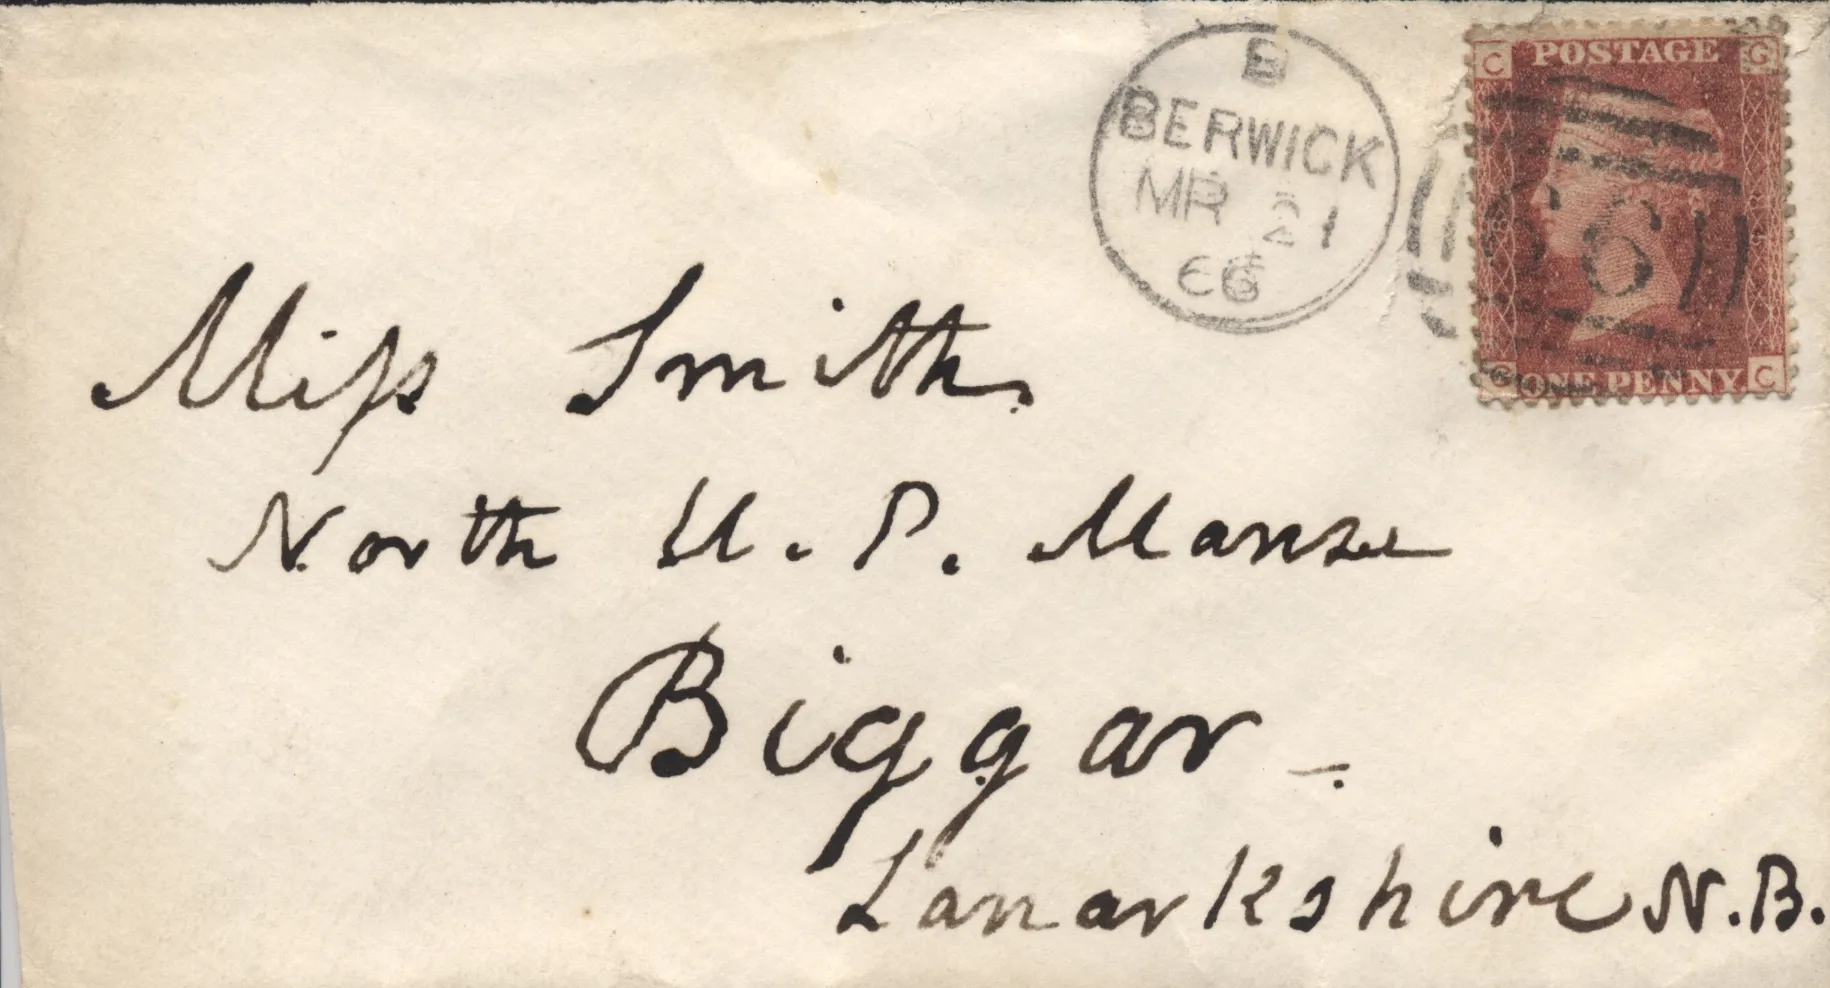 B
BERWICK
MR 21
66
C POSTAGE G
66
G ONE PENNY C
Miſs Smith.
North U. P. Manse
Biggar -.
Lanarkshire N.B.